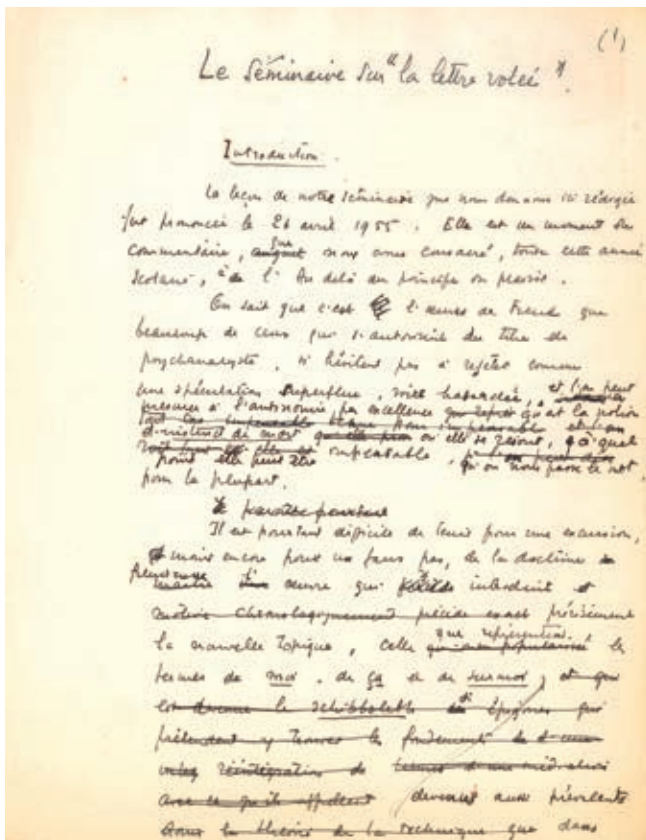 (1)
Le Séminaire sur "la lettre volée".
Introduction.
La leçon de notre séminaire que nous donnons ici rédigée
fut prononcée le 26 avril 1955. Elle est un moment du
commentaire, que nous avons consacré, toute cette année
scolaire, à l'Au delà du principe du plaisir.
On sait que c'est l'œuvre de Freud que
beaucoup de ceux qui s'autorisent du titre de
psychanalyste, n'hésitent pas à rejeter comme
une spéculation superflue, voire hasardée, et l'on peut
mesurer à l'antinomie par excellence qu'est la notion
d'instinct de mort où elle se résout, à quel
point elle peut être impensable, qu'on nous passe le mot,
pour la plupart.
Il est pourtant difficile de tenir pour une excursion,
moins encore pour un faux pas, de la doctrine
freudienne l'œuvre qui y introduit
précède précisément
la nouvelle topique, celle que représentent les
termes de moi, de ça et de surmoi, et qui
est devenue le schibboleth épigones qui
prétendent y trouver le fondement
réintégration de termes d'une
avec ce qu'ils appellent devenus aussi prévalents
dans la théorie de la technique que dans